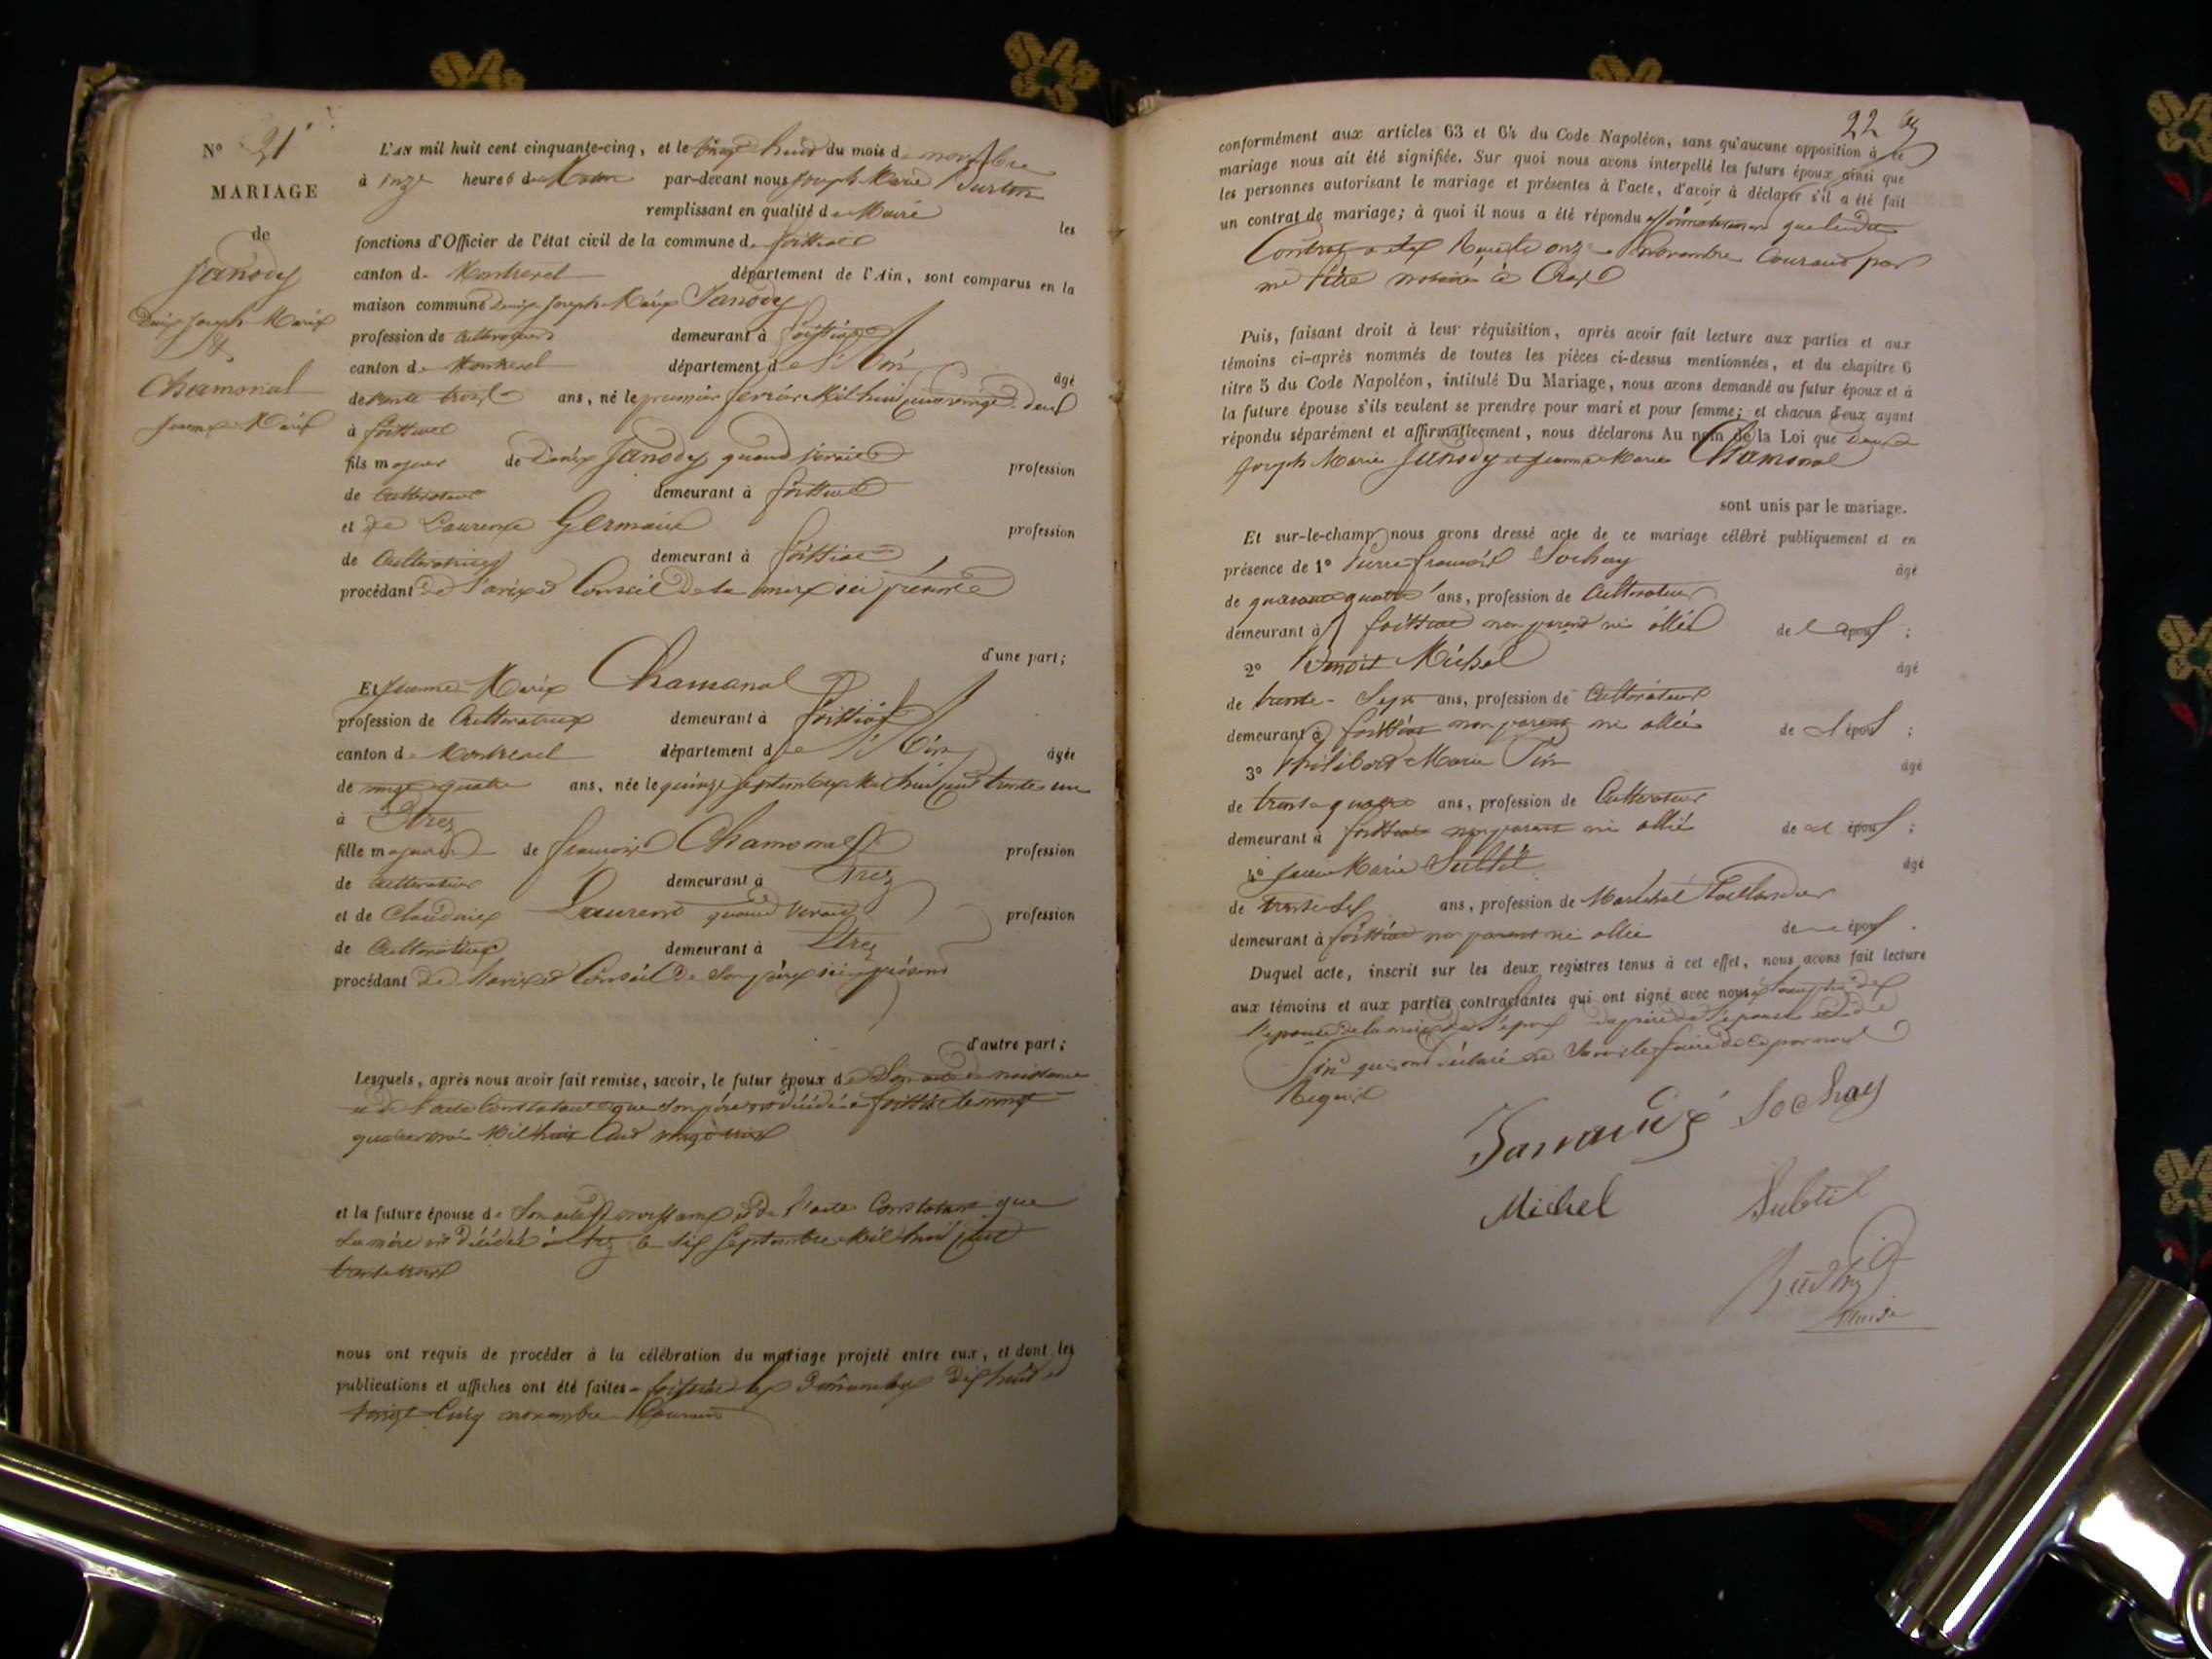 N° 21
MARIAGE
de
Janody
Denis Joseph Marie
&
Chamonal
Jeanne Marie
L'AN mil huit cent cinquante-cinq, et le vingt huit du mois de novembre
à onze heures du matin par-devant nous Joseph Marie
remplissant en qualité de Maire les
fonctions d'Officier de l'état civil de la commune de foissiat
canton de Montrevel département de l'Ain, sont comparus en la
maison commune Denis Joseph Marie Janody
profession de cultivateur demeurant à foissiat
canton de Montrevel département de l'Ain âgé
de trente trois ans, né le premier février mil huit cent vingt deux
à foissiat
fils majeur de Denis Janody quand vivait profession
de cultivateur demeurant à foissiat
et de Laurence Germain profession
de cultivatrice demeurant à foissiat
procédant de l'avis et Conseil de sa mère ici présente
d'une part;
Et Jeanne Marie Chamonal
profession de Cultivatrice demeurant à foissiat
canton de Montrevel département de l'Ain âgée
de vingt quatre ans, née le quinze septembre mil huit cent trente un
à Etrez
fille majeure de francois Chamonal profession
de cultivateur demeurant à Etrez
et de Claudine Laurent quand vivait profession
de Cultivatrice demeurant à Etrez
procédant de l'avis et Conseil de son père ici présent
d'autre part;
Lesquels, après nous avoir fait remise, savoir, le futur époux de Son acte de naissance
et de l'acte Constatant que son père est décédé à foissiat le
mil huit Cent vingt trois
et la future épouse de Son acte de naissance et de l'acte Constatant que
sa mère est décédée à Etrez le six septembre mil huit cent
trente trois
nous ont requis de procéder à la célébration du mariage projeté entre eux, et dont les
publications et affiches ont été faites à foissiat les Dimanches dix huit et
vingt Cinq novembre Courant
22
conformément aux articles 63 et 64 du Code Napoléon, sans qu'aucune opposition à ce
mariage nous ait été signifiée. Sur quoi nous avons interpellé les futurs époux ainsi que
les personnes autorisant le mariage et présentes à l'acte, d'avoir à déclarer s'il a été fait
un contrat de mariage; à quoi il nous a été répondu affirmativement que ledit
Contrat a été Reçu le onze novembre Courant par
me notaire à
Puis, faisant droit à leur réquisition, après avoir fait lecture aux parties et aux
témoins ci-après nommés de toutes les pièces ci-dessus mentionnées, et du chapitre 6
titre 5 du Code Napoléon, intitulé Du Mariage, nous avons demandé au futur époux et à
la future épouse s'ils veulent se prendre pour mari et pour femme; et chacun d'eux ayant
répondu séparément et affirmativement, nous déclarons Au nom de la Loi que Denis
Joseph Marie Janody et Jeanne Marie Chamonal
sont unis par le mariage.
Et sur-le-champ nous avons dressé acte de ce mariage célébré publiquement et en
présence de 1° Pierre francois Sochay âgé
de quarante quatre ans, profession de Cultivateur
demeurant à foissiat non parent ni allié de l'époux;
2° Benoit Michel âgé
de trente-Sept ans, profession de Cultivateur
demeurant à foissiat non parent ni allié de l'époux;
3° Philibert Marie Pin âgé
de trente quatre ans, profession de Cultivateur
demeurant à foissiat non parent ni allié de l'époux;
4° Marie Subtil âgé
de trente six ans, profession de Maréchal Taillandier
demeurant à foissiat non parent ni allié de époux.
Duquel acte, inscrit sur les deux registres tenus à cet effet, nous avons fait lecture
aux témoins et aux parties contractantes qui ont signé avec nous à l'exception de
l'épouse de la mère de l'époux du père de l'épouse et de
Pin qui ont déclaré ne savoir le faire de ce par nous
Requis
Sochay
Michel
Subtil
Maire